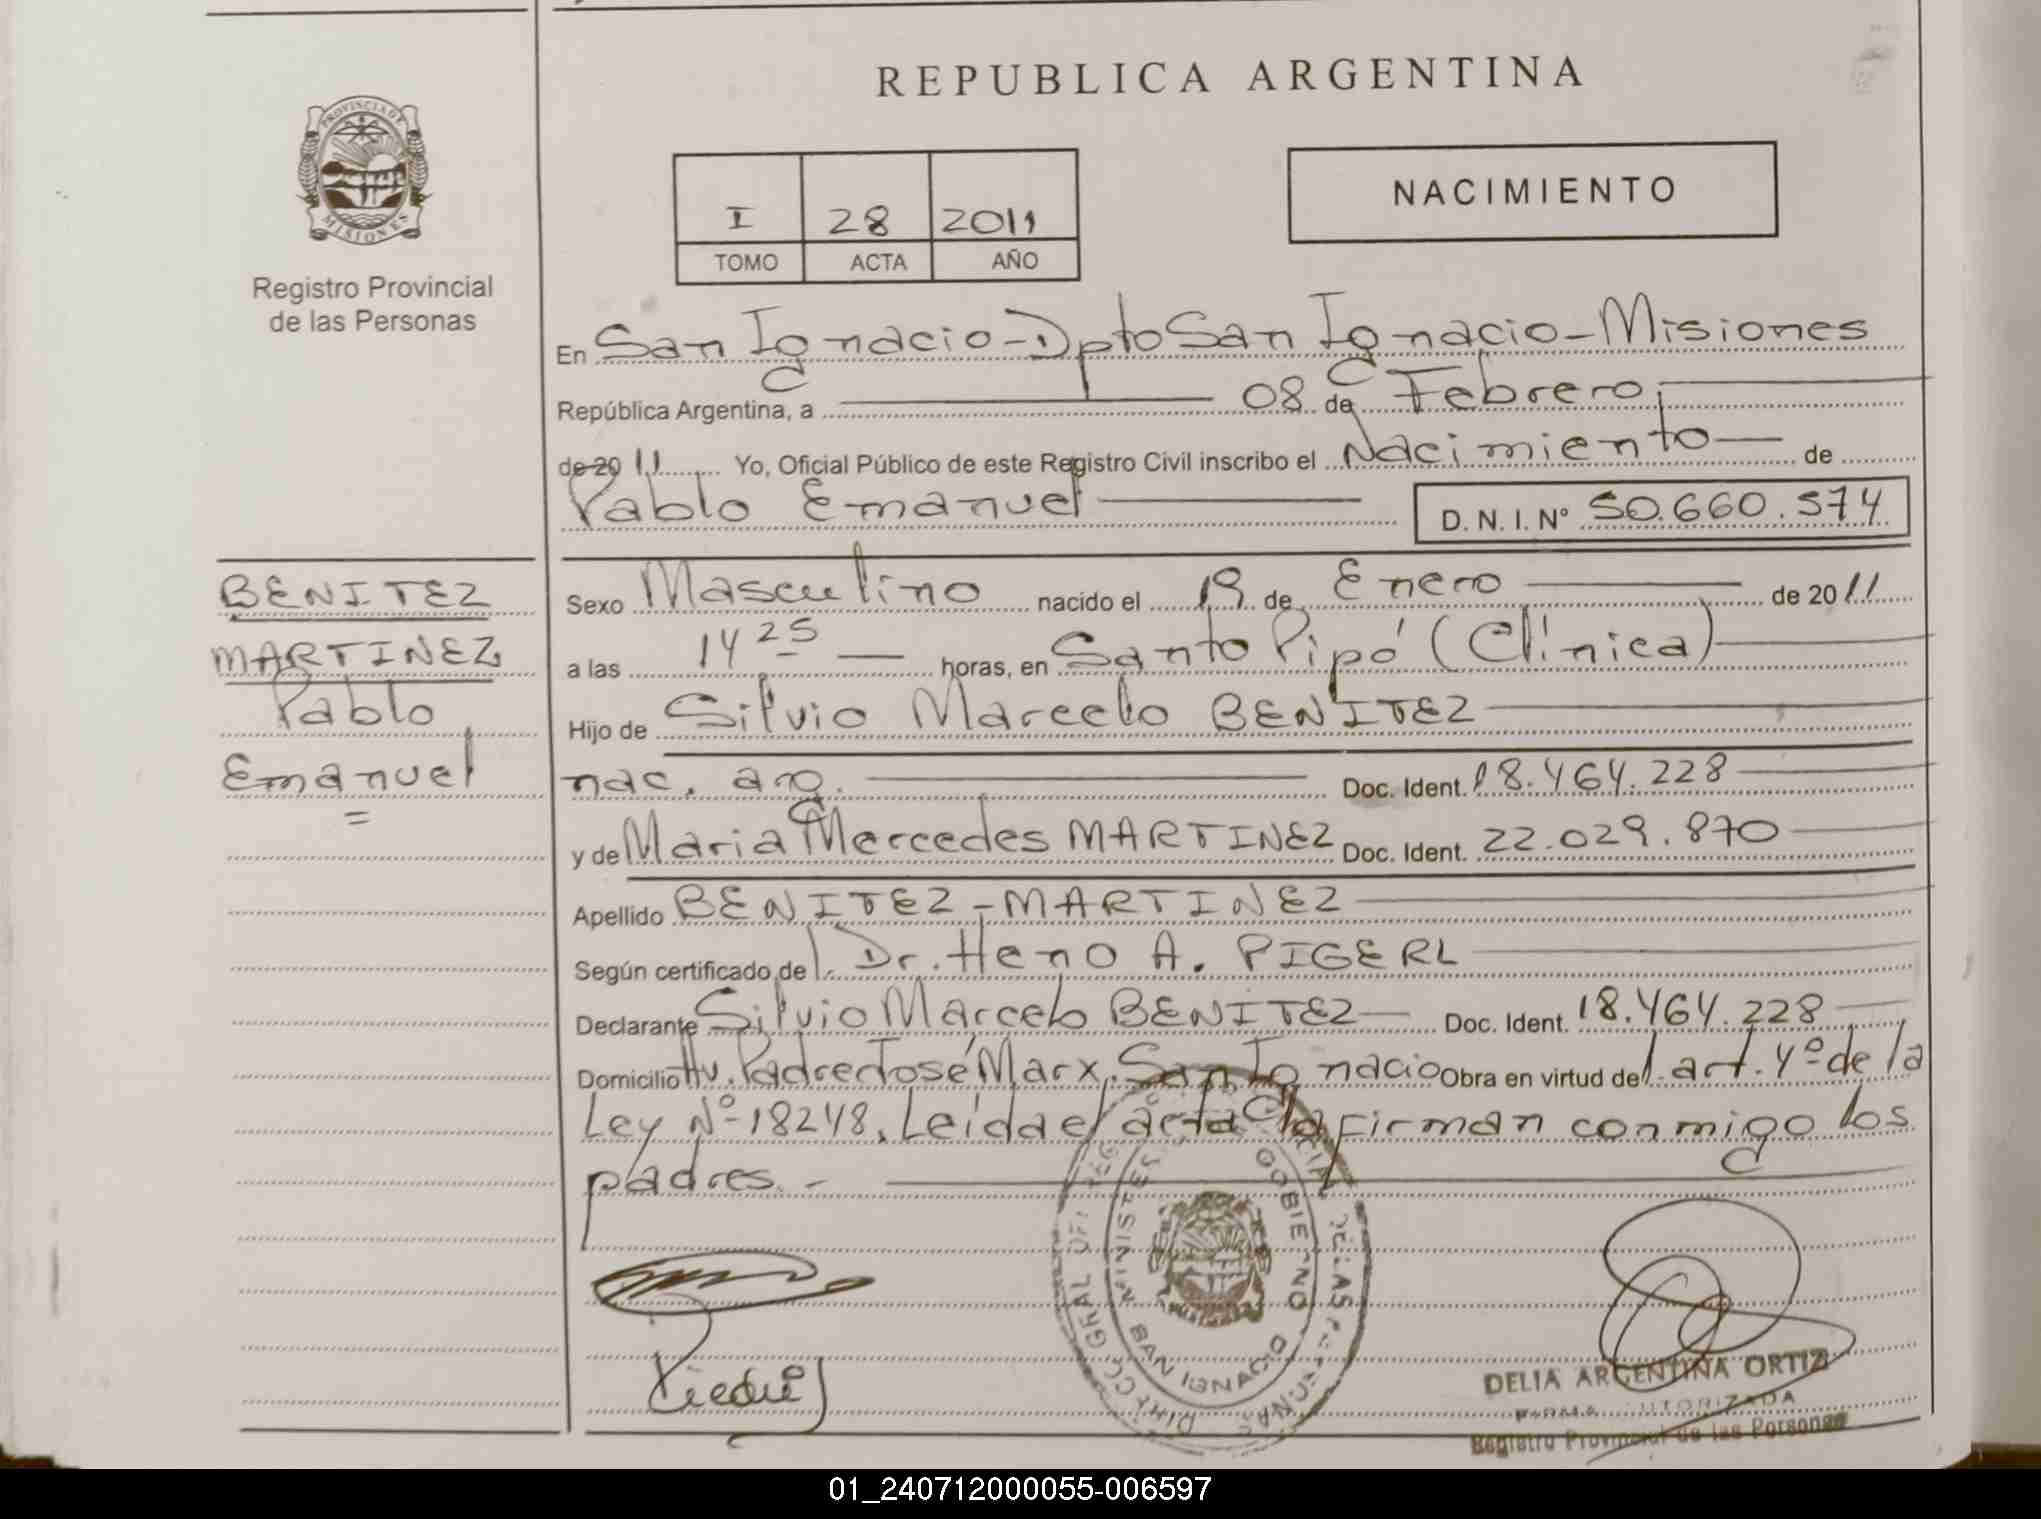 REPUBLICA ARGENTINA
PROVINCIA DE
MISIONES
Registro Provincial
de las Personas
I 28 2011
TOMO ACTA AÑO
NACIMIENTO
En San Ignacio - Dpto San Ignacio - Misiones
República Argentina, a 08 de Febrero
de 2011 Yo, Oficial Público de este Registro Civil inscribo el Nacimiento de
Pablo Emanuel D. N. I. Nº 50.660.574
BENITEZ
MARTINEZ
Pablo
Emanuel
=
Sexo Masculino nacido el 19 de Enero de 2011
a las 14 25 horas, en Santo Pipó (Clínica)
Hijo de Silvio Marcelo BENITEZ
nac. arg. Doc. Ident. 18.464.228
y de Maria Mercedes MARTINEZ Doc. Ident. 22.029.870
Apellido BENITEZ - MARTINEZ
Según certificado del. Dr. Heno A. PIGERL
Declarante Silvio Marcelo BENITEZ Doc. Ident. 18.464.228
Domicilio Av. Padre José Marx. San Ignacio Obra en virtud del. art. 4º de la
Ley Nº 18248. Leída el acta la firman conmigo los
padres. -
MINISTERIO GOBIERNO
SAN IGNACIO
DELIA ARGENTINA ORTIZ
FIRMA AUTORIZADA
Registro Provincial de las Personas
01_240712000055-006597